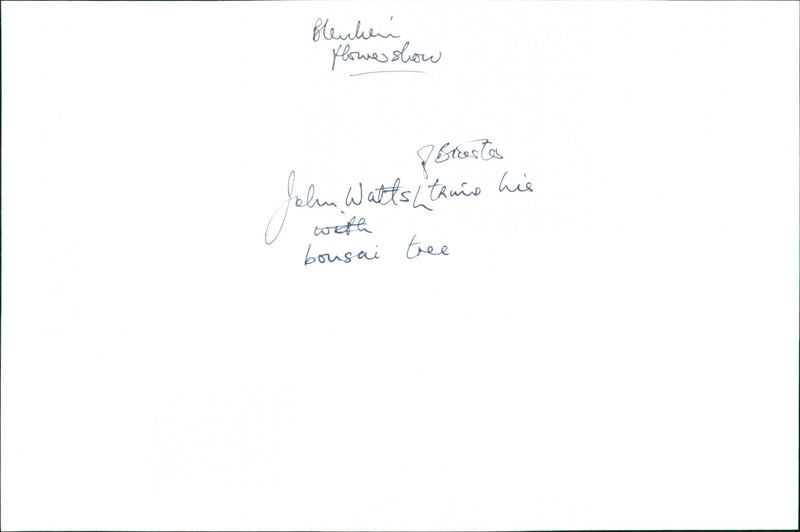 Blenheim
Flowershow
of Bicester
John Watts trims his
with
bonsai tree